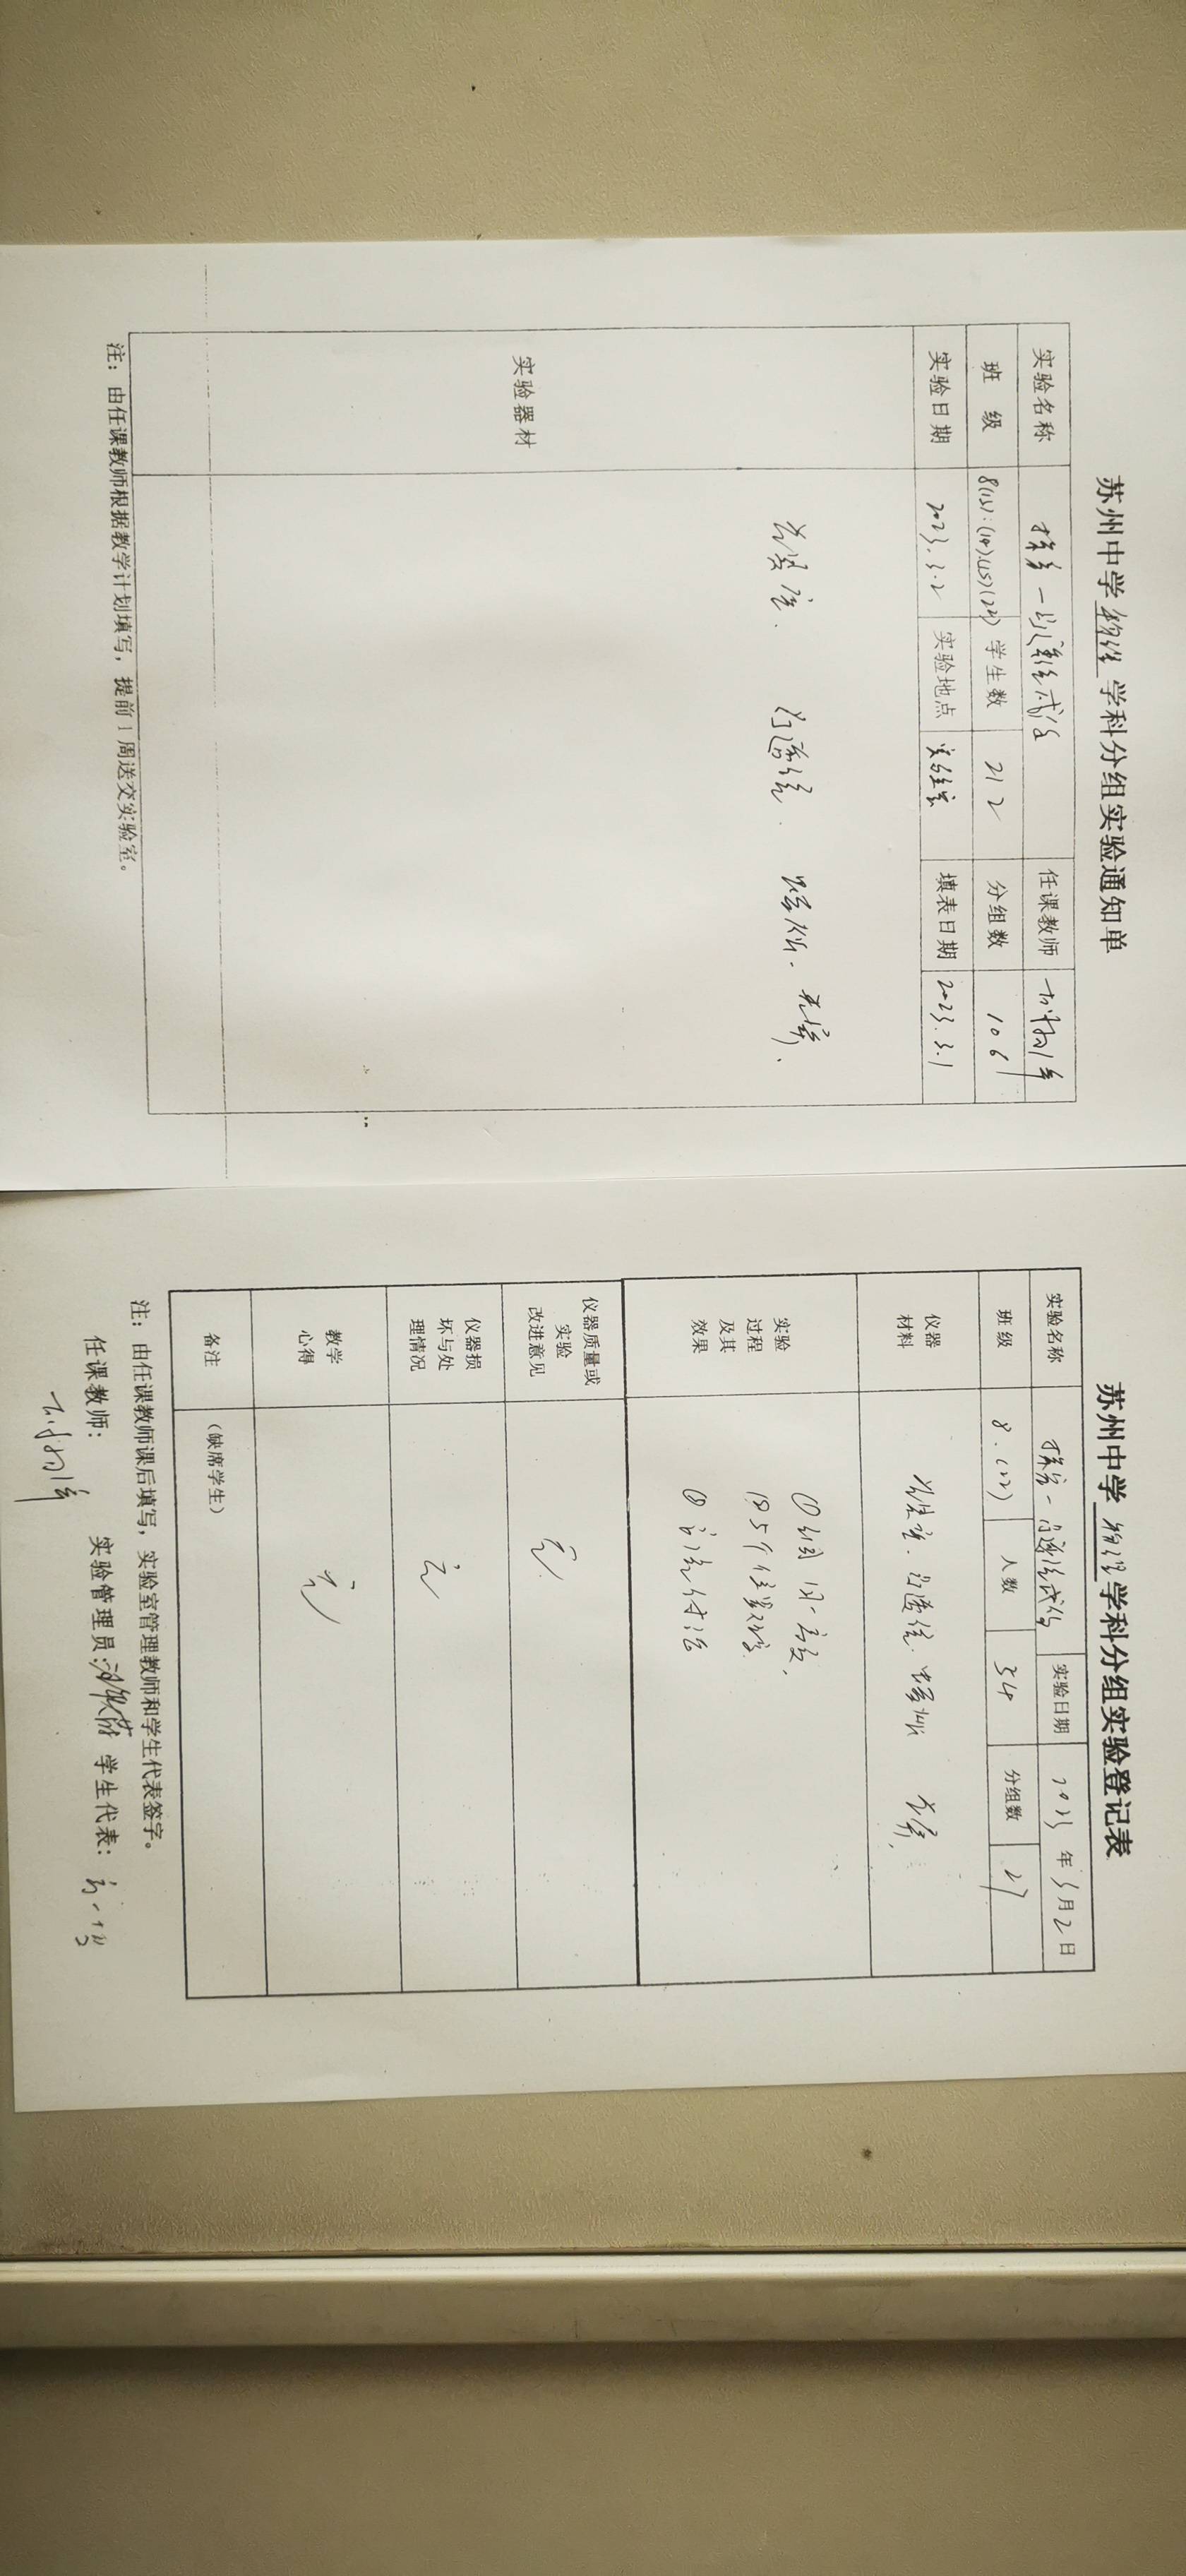 苏州中学 物理 学科分组实验通知单
实验名称 探究 凸透镜成像 任课教师
班 级 学生数 212 分组数 106
实验日期 2023.3.2 实验地点 实验室 填表日期 2023.3.1
实验器材 光具座. 凸透镜. 蜡烛. 光屏.
注：由任课教师根据教学计划填写，提前1周送交实验室。
苏州中学 物理 学科分组实验登记表
实验名称 探究 凸透镜成像 实验日期 2023 年 3 月 2 日
班级 人数 54 分组数 27
仪器
材料 光具座. 凸透镜. 蜡烛 光屏.
实验
过程
及其
效果
仪器质量或
实验
改进意见 无
仪器损
坏与处
理情况 无
教学
心得 无
备注 （缺席学生）
注：由任课教师课后填写，实验室管理教师和学生代表签字。
任课教师： 实验管理员： 学生代表：